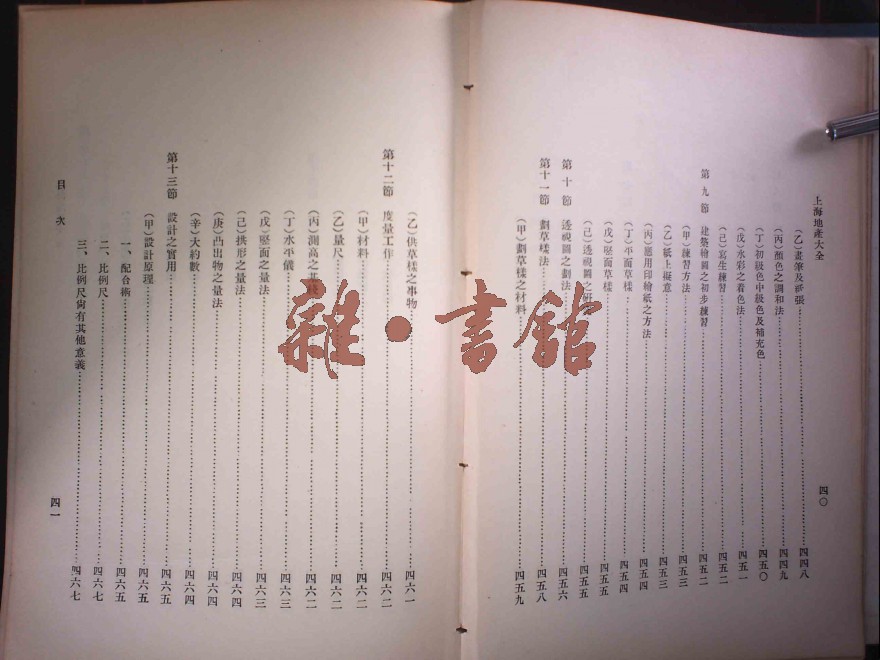 上海地產大全
四〇
(乙)畫筆及砑張……四四八
(丙)顏色之調和法……四四九
(丁)初級色中級色及補充色……四五〇
(戊)水彩之着色法……四五一
(己)寫生練習……四五二
第九節 建築繪圖之初步練習……四五二
(甲)練習方法……四五三
(乙)紙上擬意……四五三
(丙)應用印繪紙之方法……四五四
(丁)平面草樣……四五四
(戊)竪面草樣……四五五
(己)透視圖之……四五五
第十節 透視圖之劃法……四五六
第十一節 劃草樣法……四五八
(甲)劃草樣之材料……四五九
(乙)供草樣之事物……四六一
第十二節 度量工作……四六二
(甲)材料……四六二
(乙)量尺……四六二
(丙)測高之……四六二
(丁)水平儀……四六三
(戊)竪面之量法……四六三
(己)拱形之量法……四六四
(庚)凸出物之量法……四六四
(辛)大約數……四六四
第十三節 設計之實用……四六五
(甲)設計原理……四六五
一、配合術……四六五
二、比例尺……四六七
三、比例尺尙有其他意義……四六七
目次
四一
雜·書館